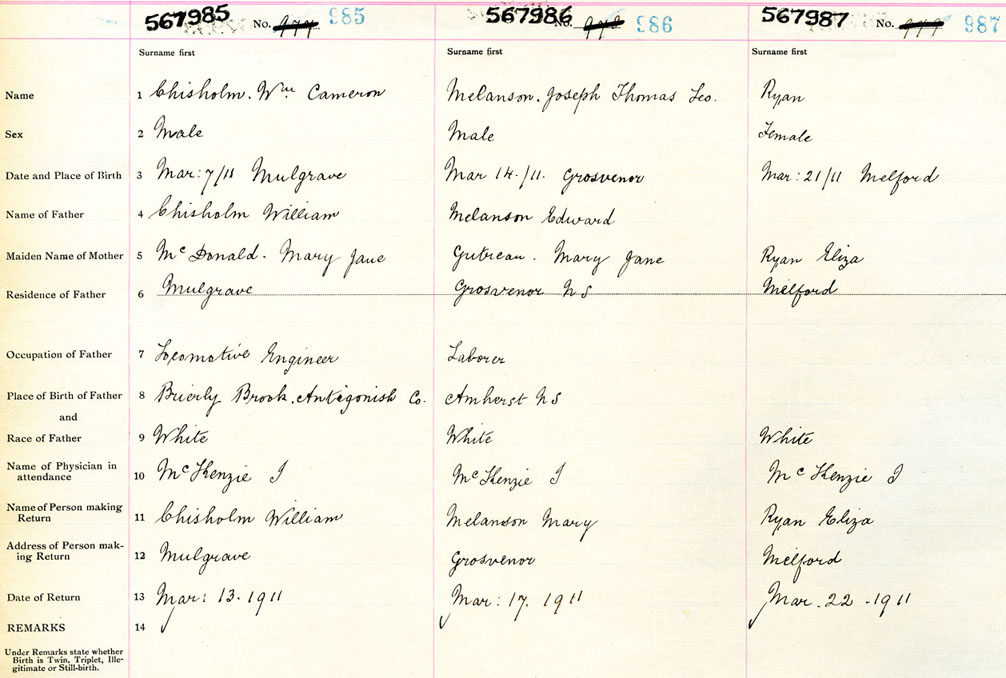 567985 No. 985 567986 No. 986 567987 No. 987
Surname first Surname first Surname first
Name 1 Chisholm. Wm Cameron Melanson. Joseph Thomas Leo. Ryan
Sex 2 Male Male Female
Date and Place of Birth 3 Mar: 7/11 Mulgrave Mar 14./11. Grosvenor Mar: 21/11 Melford
Name of Father 4 Chisholm William Melanson Edward
Maiden Name of Mother 5 McDonald. Mary Jane Gutreau. Mary Jane Ryan Eliza
Residence of Father 6 Mulgrave Grosvenor NS Melford
Occupation of Father 7 Locomotive Engineer Laborer
Place of Birth of Father 8 Brierly Brook. Antigonish Co. Amherst NS
and
Race of Father 9 White White White
Name of Physician in
attendance 10 McKenzie J McKenzie J McKenzie J
Name of Person making
Return 11 Chisholm William Melanson Mary Ryan Eliza
Address of Person mak-
ing Return 12 Mulgrave Grosvenor Melford
Date of Return 13 Mar: 13. 1911 Mar: 17. 1911 Mar. 22 - 1911
REMARKS 14
Under Remarks state whether
Birth is Twin, Triplet, Ille-
gitimate or Still-birth.